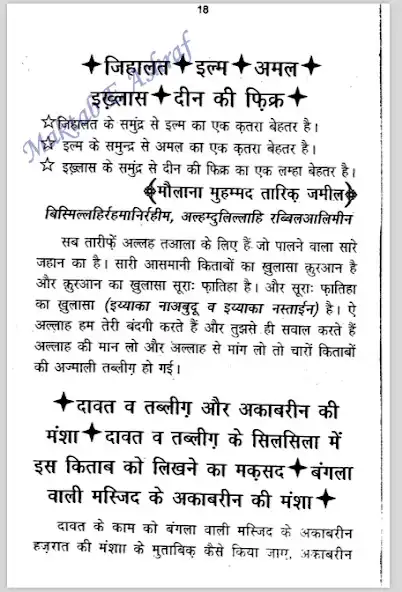 18
Maktab E Ashraf
✦जिहालत✦इल्म✦अमल✦
इख़्लास✦दीन की फ़िक्र✦
☆जिहालत के समुंद्र से इल्म का एक क़तरा बेहतर है।
☆ इल्म के समुन्द्र से अमल का एक क़तरा बेहतर है।
☆ इख़्लास के समुंद्र से दीन की फिक्र का एक लम्हा बेहतर है।
मौलाना मुहम्मद तारिक़ जमील
बिस्मिल्लहिर्रहमानिर्रहीम, अल्हम्दुलिल्लाहि रब्बिलआलिमीन
सब तारीफ़ें अल्लह तआला के लिए हैं जो पालने वाला सारे
जहान का है। सारी आसमानी किताबों का खुलासा क़ुरआन है
और क़ुरआन का खुलासा सूराः फ़ातिहा है। और सूराः फ़ातिहा
का खुलासा (इय्याका नाअबुदू व इय्याका नस्ताईन) है। ऐ
अल्लाह हम तेरी बंदगी करते हैं और तुझसे ही सवाल करते हैं
अल्लाह की मान लो और अल्लाह से मांग लो तो चारों किताबों
की अज्माली तब्लीग़ हो गई।
✦दावत व तब्लीग़ और अकाबरीन की
मंशा✦दावत व तब्लीग़ के सिलसिला में
इस किताब को लिखने का मक़सद✦बंगला
वाली मस्जिद के अकाबरीन की मंशा✦
दावत के काम को बंगला वाली मस्जिद के अकाबरीन
हज़रात की मंशाा के मुताबिक़ कैसे किया जाए, अकाबरीन